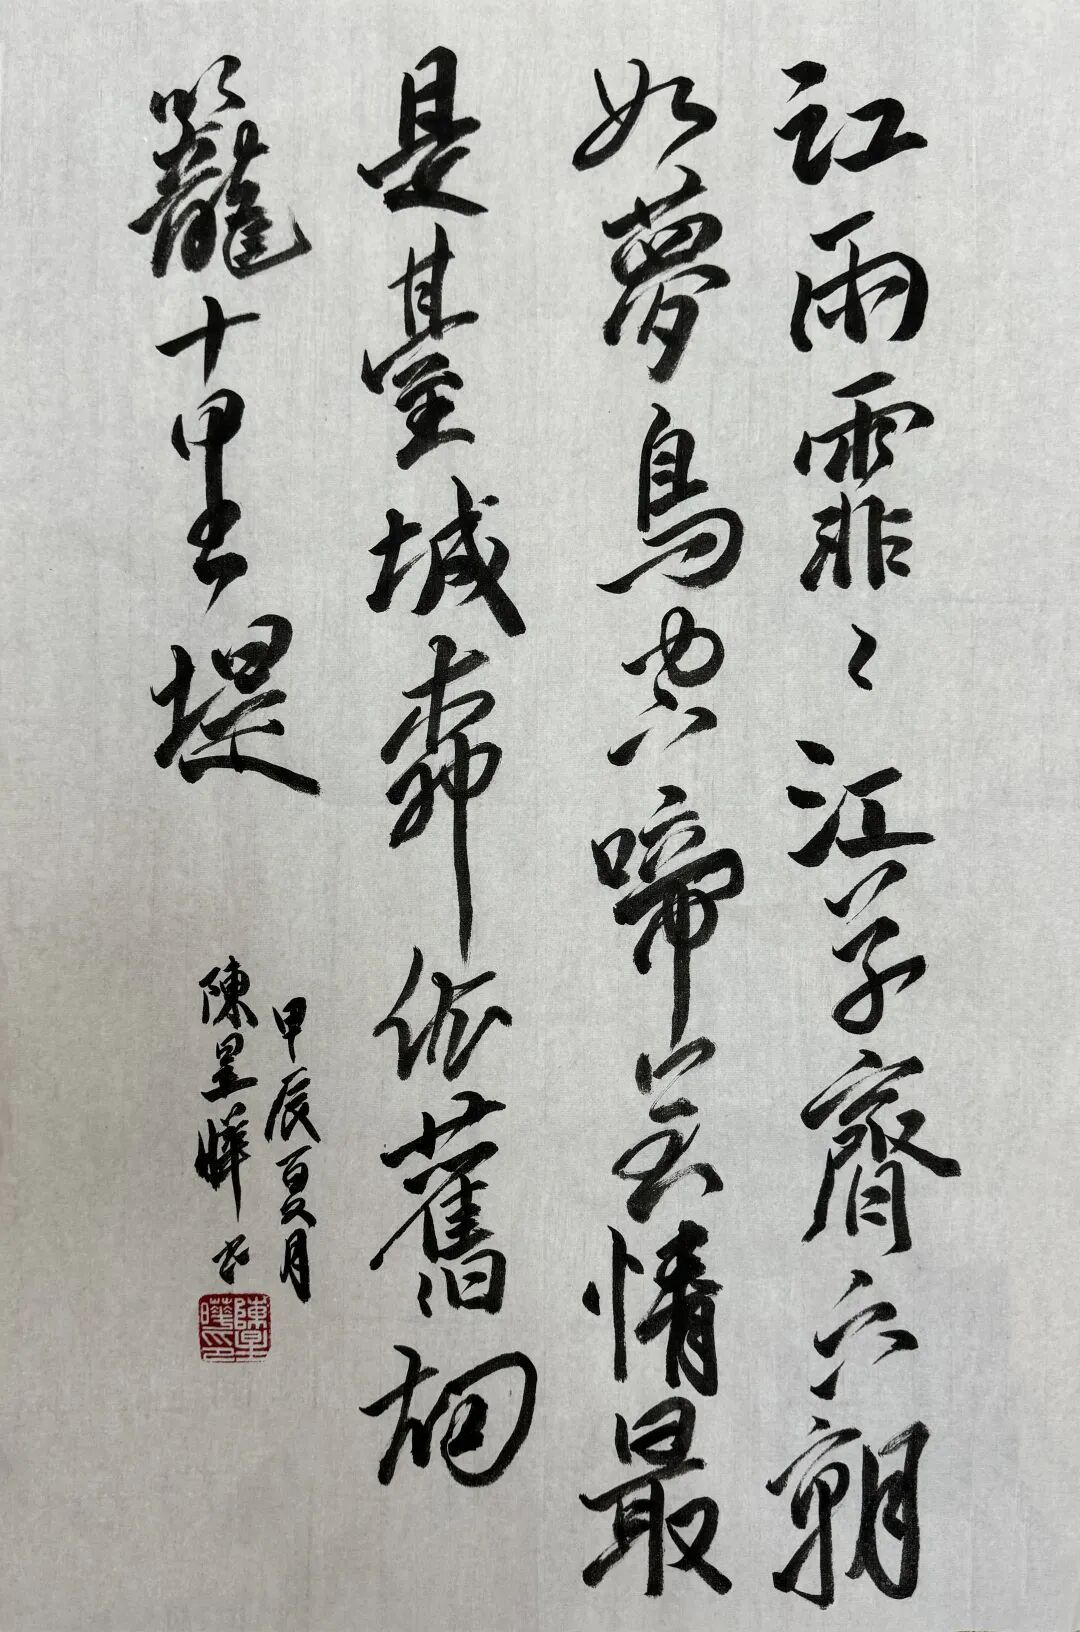 江雨霏〻江草齊六朝
如夢鳥空啼無情最
是臺城柳依舊烟
籠十里堤
甲辰夏月
陳星曄书
陳星曄印